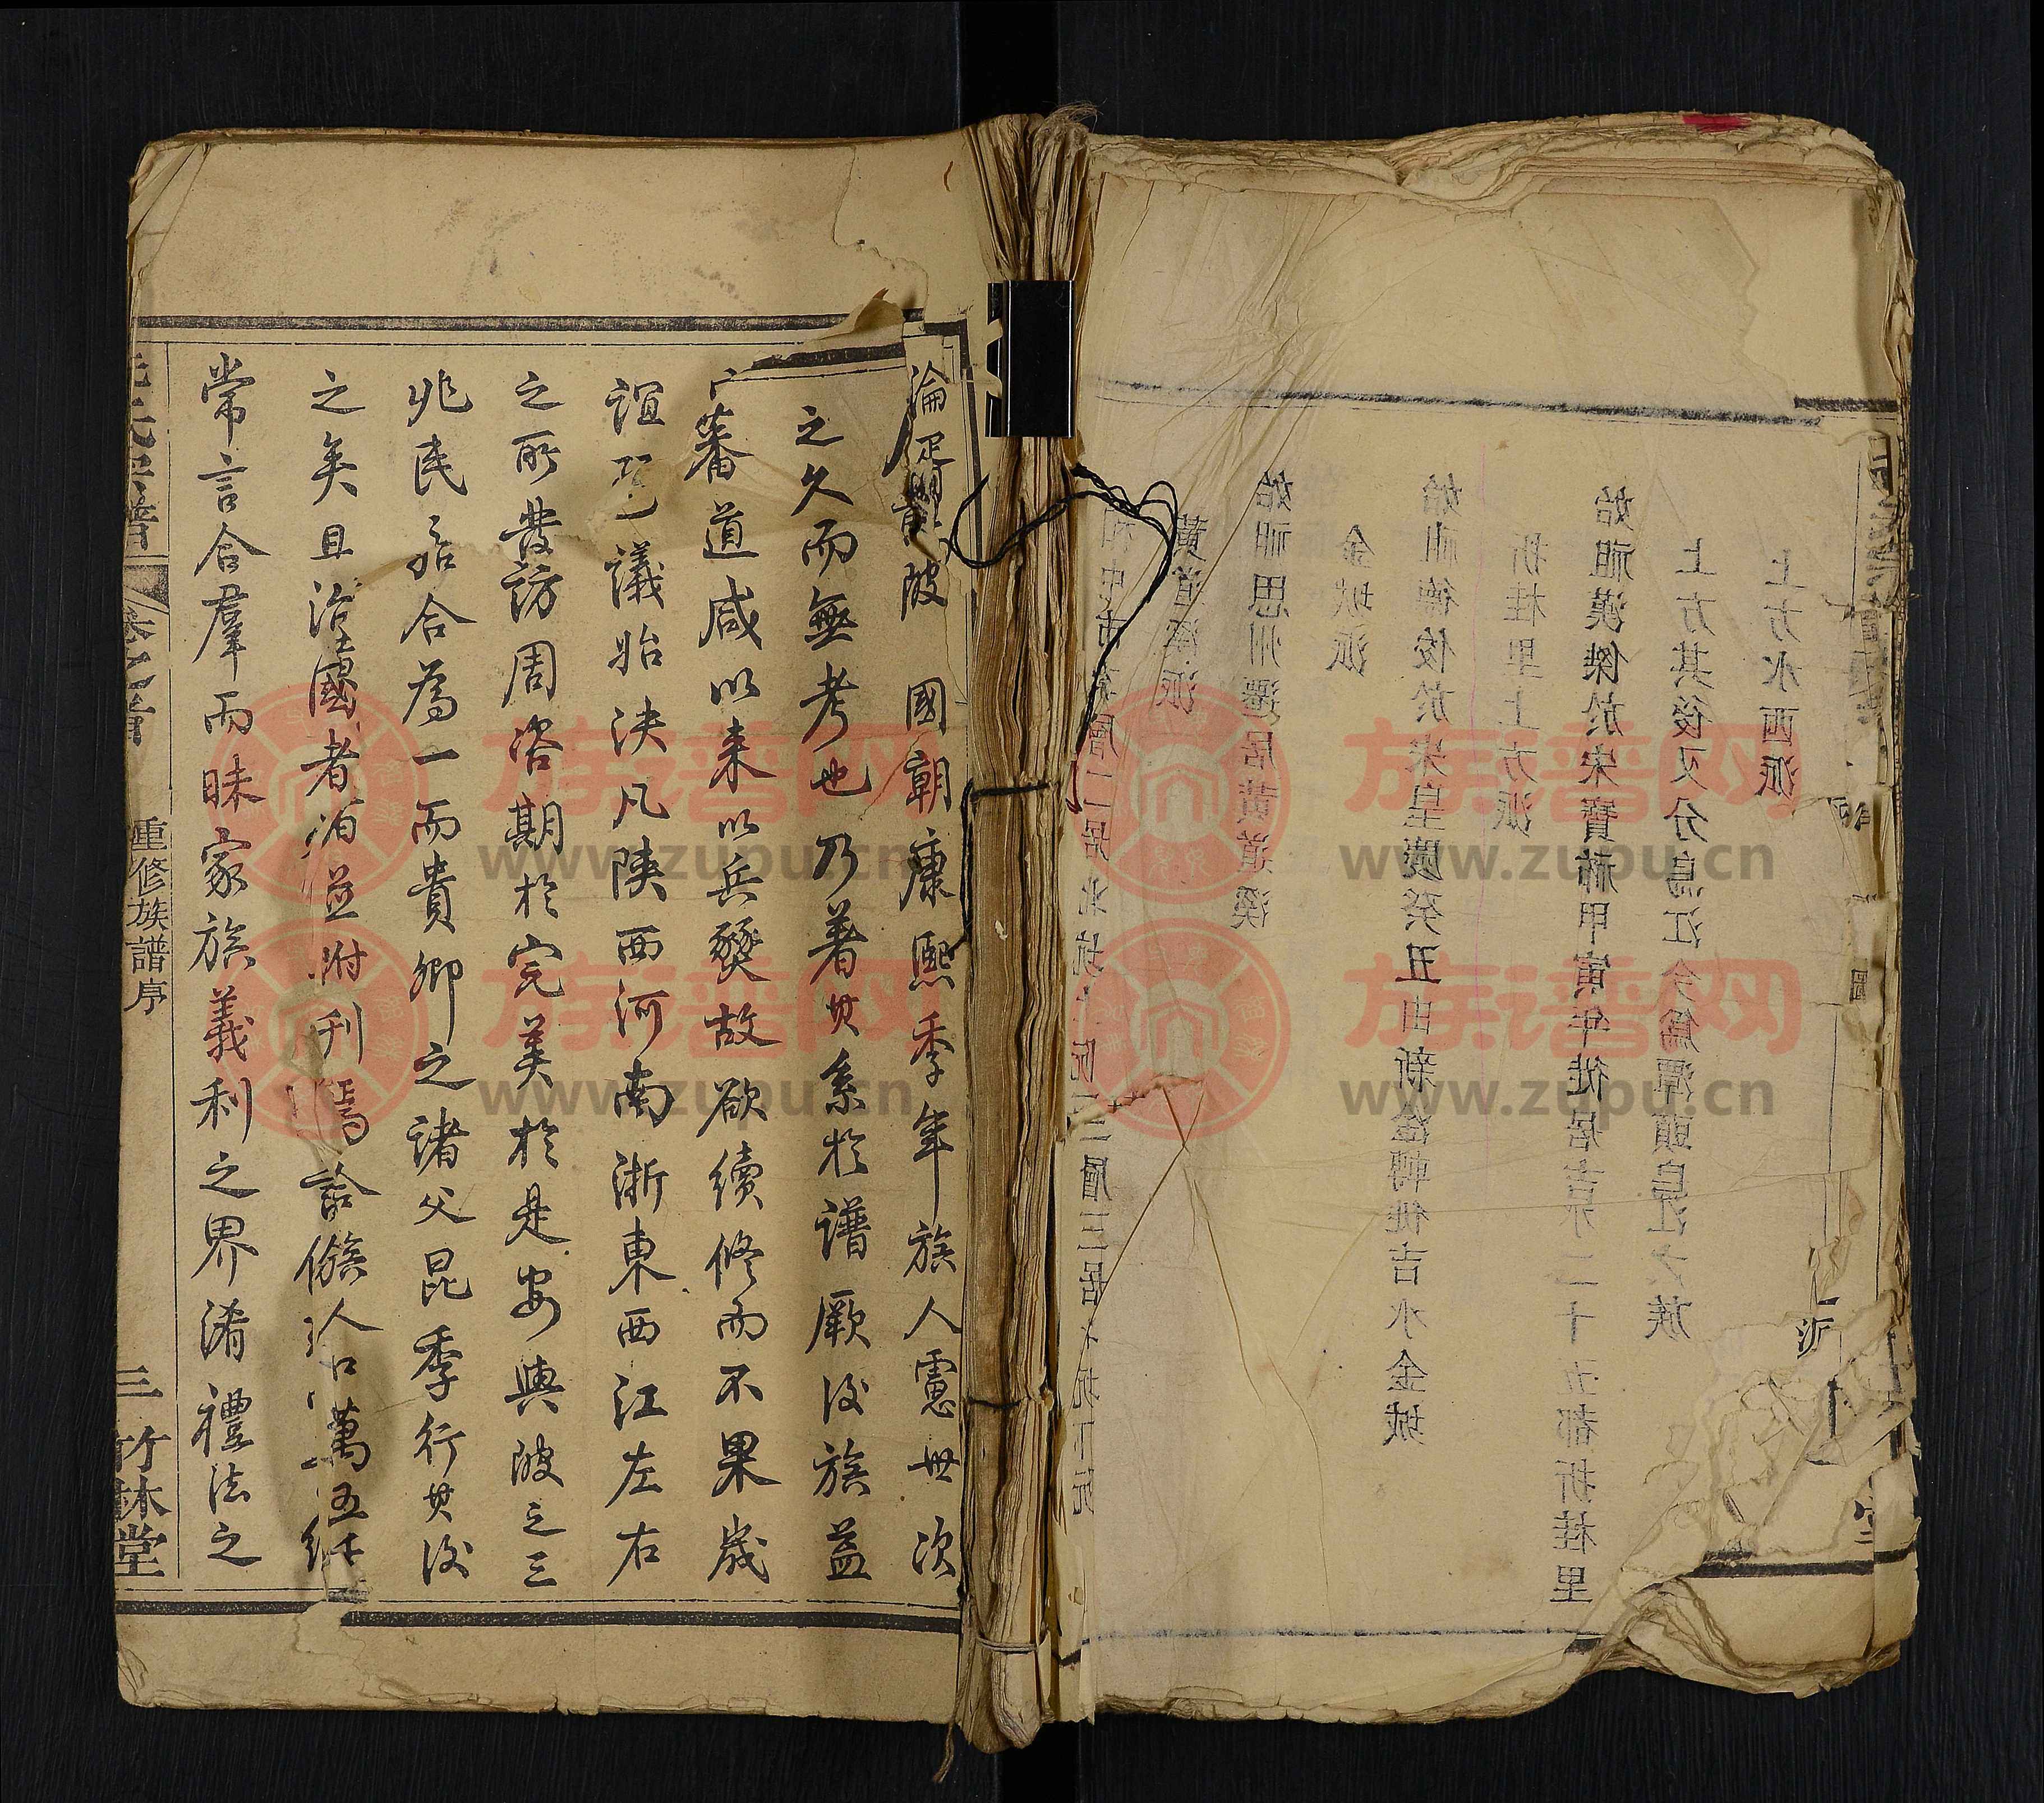 上方水西派
上方其後又分烏江今爲潭頭烏江之族
始祖漢傑於宋寶祐甲寅年徙居吉水二十五都折桂里
折桂里上方派
始祖德俊於宋皇慶癸丑由新淦轉徙吉水金城
金城派
始祖思州遷居黄道溪
黄道溪派
國朝康熙季年族人慮世次
之久而無考也乃著其系於譜厥後族益
蕃道咸以来以兵燹故欲續修而不果歲
議始決凡陝西河南浙東西江左右
之所發訪周咨期於完美於是安輿陂之三
兆民居合為一而貴卿之諸父昆季行其後
之矣且治國者並附刊焉族人萬五千
常言合羣而昧家族義利之界淆禮法之
卷之首
重修族譜序
三
竹林堂
族谱网
www.zupu.cn
族谱网
www.zupu.cn
族谱网
www.zupu.cn
族谱网
www.zupu.cn